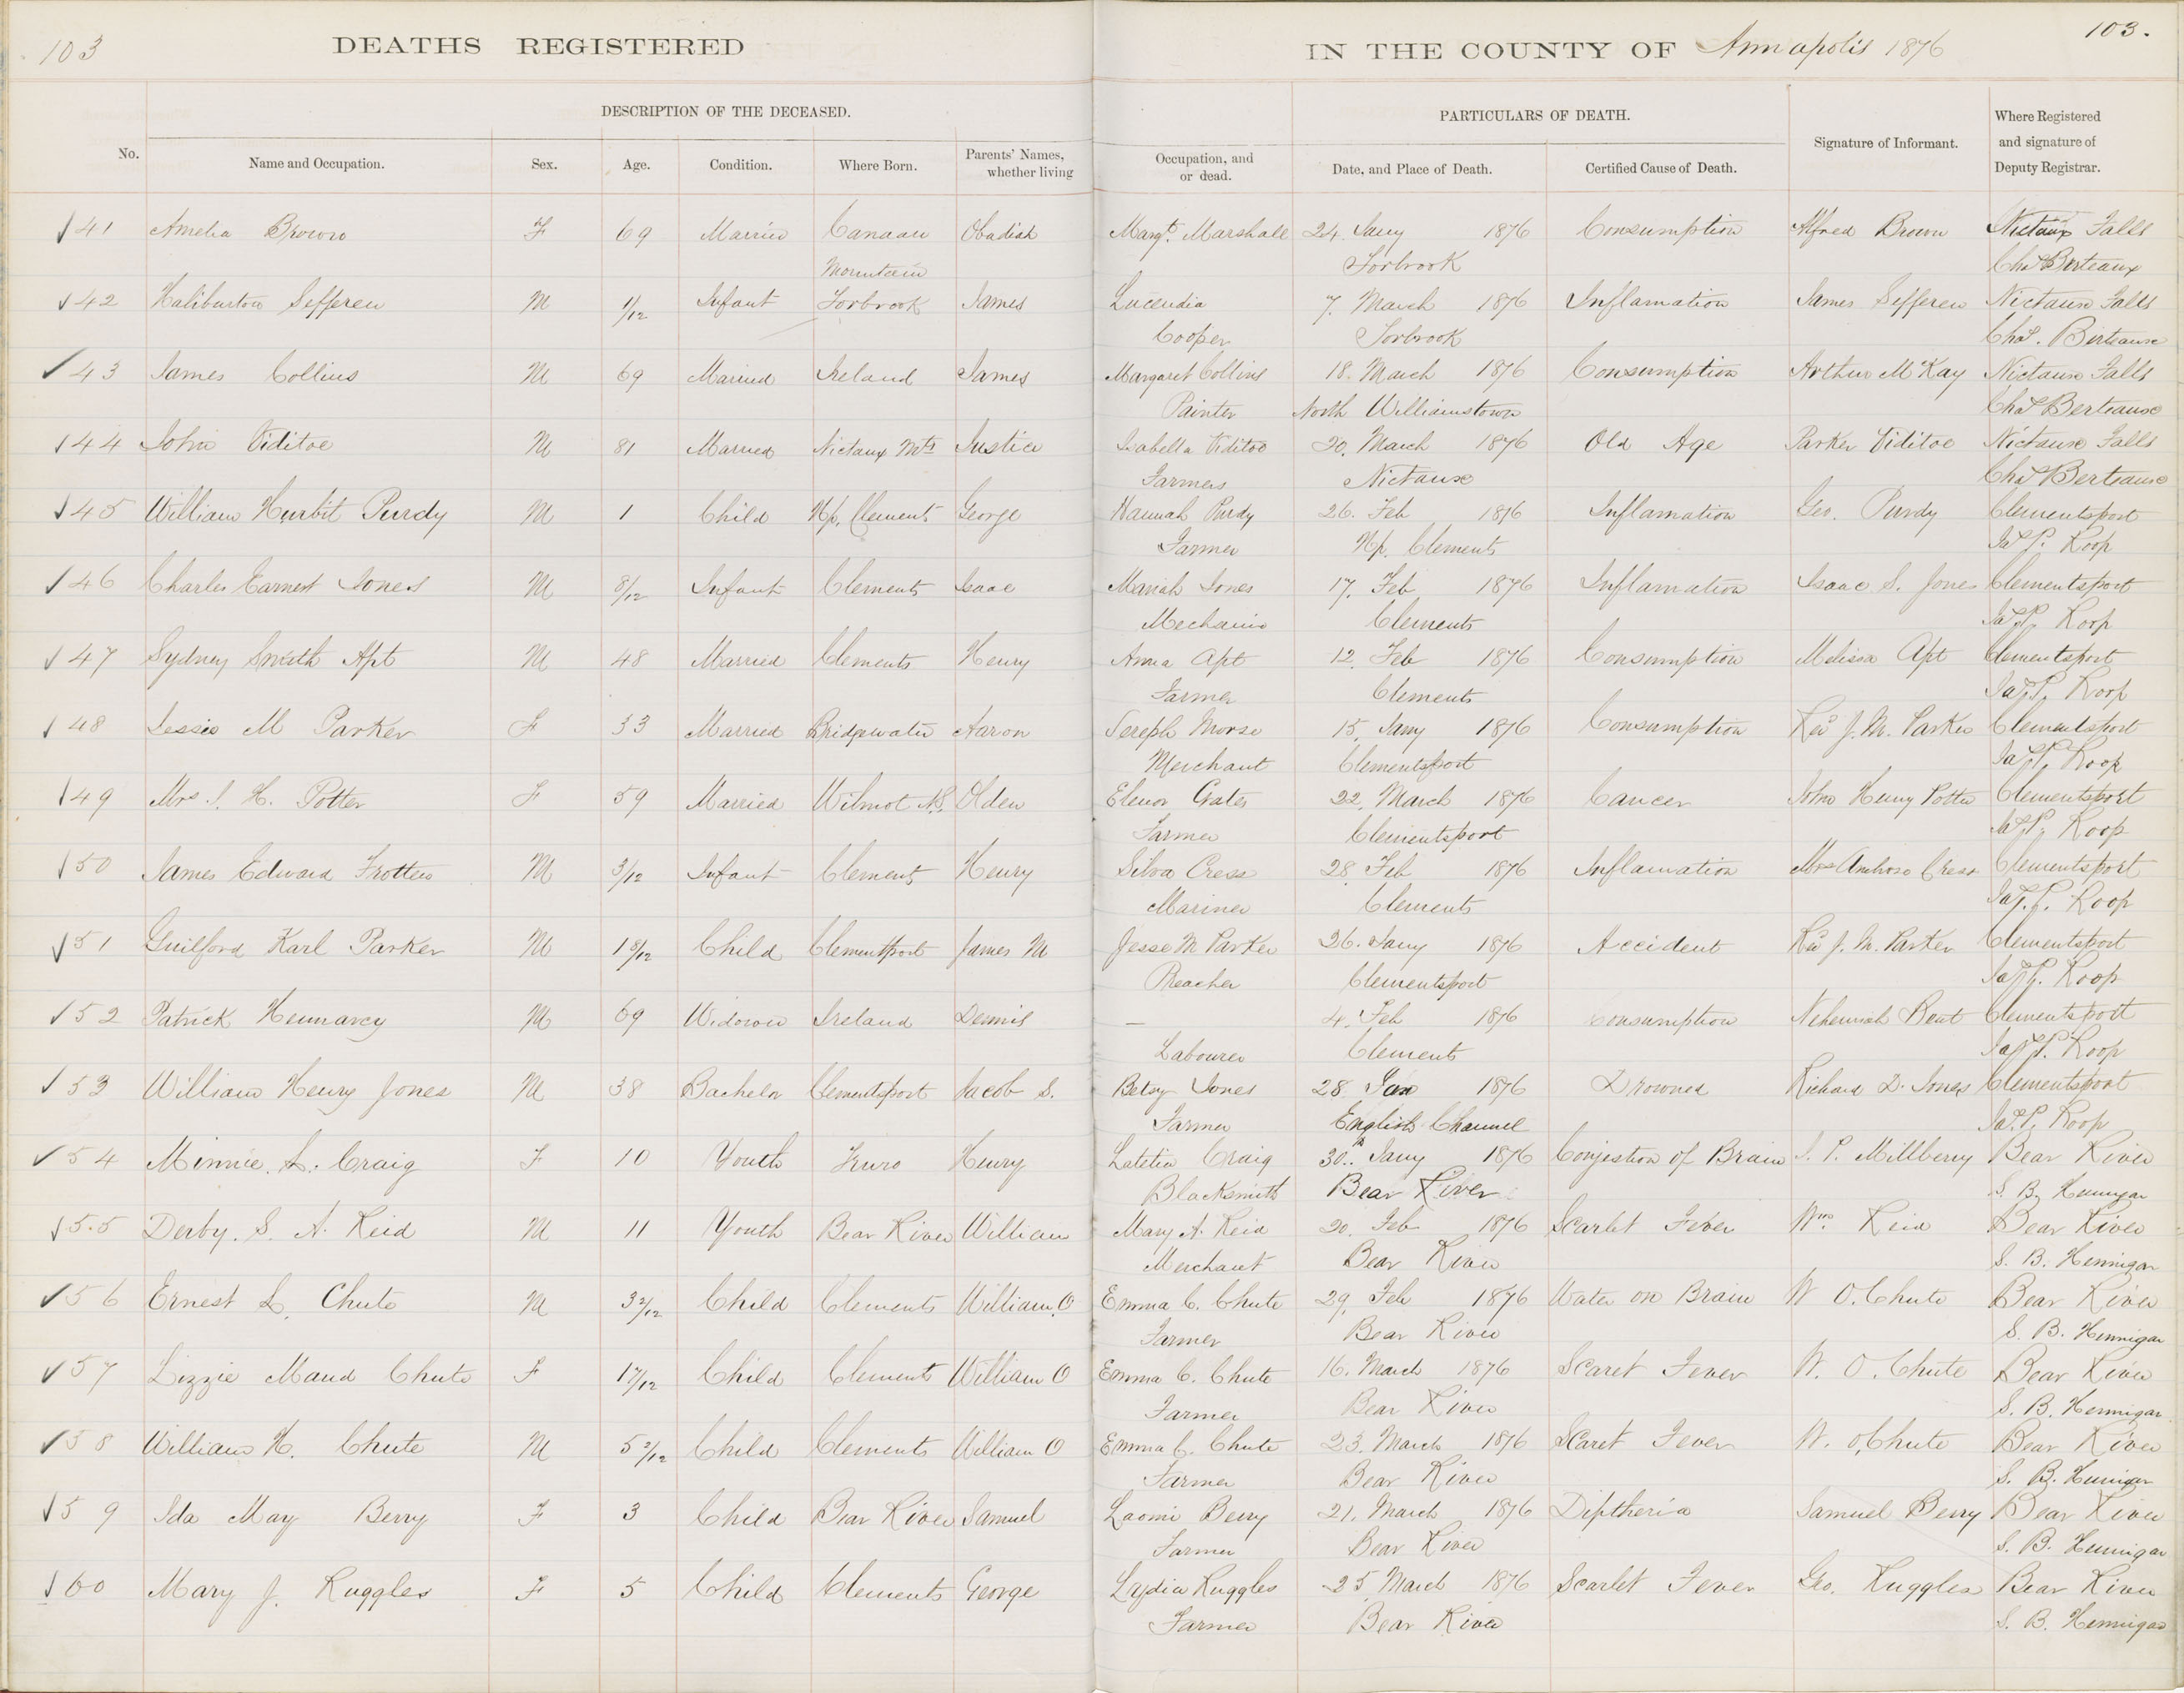 103
DEATHS REGISTERED
IN THE COUNTY OF Annapolis 1876
103.
DESCRIPTION OF THE DECEASED.
PARTICULARS OF DEATH.
No. Name and Occupation. Sex. Age. Condition. Where Born. Parents' Names, whether living Occupation, and or dead. Date, and Place of Death. Certified Cause of Death. Signature of Informant. Where Registered and signature of Deputy Registrar.
41 Amelia Brown F 69 Married Canaan Obadiah Margt. Marshall 24. Jany 1876 Consumption Alfred Brown Nictaux Falls
Mountain Torbrook Chas Berteaux
42 Haliburton Sefferen M 1/12 Infant Torbrook James Lucendia 7. March 1876 Inflamation James Sefferen Nictaux Falls
Cooper Torbrook Chas. Berteaux
43 James Collins M 69 Married Ireland James Margaret Collins 18. March 1876 Consumption Arthur McKay Nictaux Falls
Painter North Williamstown Chas Berteaux
44 John Viditoe M 81 Married Nictaux Mts Justice Isabella Viditoe 20. March 1876 Old Age Parker Viditoe Nictaux Falls
Farmers Nictaux Chas Berteaux
45 William Hurbit Purdy M 1 Child Up. Clements George Hannah Purdy 26. Feb 1876 Inflamation Geo. Purdy Clementsport
Farmer Up. Clements Jas P. Roop
46 Charles Earnest Jones M 8/12 Infant Clements Isaac Mariah Jones 17. Feb 1876 Inflamation Isaac S. Jones Clementsport
Mechanic Clements Jas P. Roop
47 Sydney Smith Apt M 48 Married Clements Henry Anna Apt 12. Feb 1876 Consumption Melissa Apt Clementsport
Farmer Clements Jas P. Roop
48 Jessie M Parker F 33 Married Bridgewater Aaron Sereph Morse 15. Jany 1876 Consumption Rev J. M. Parker Clementsport
Merchant Clementsport Jas P. Roop
49 Mrs J. H. Potter F 59 Married Wilmot NS. Olden Elenor Gates 22. March 1876 Cancer John Henry Potter Clementsport
Farmer Clementsport Jas P. Roop
50 James Edward Trotter M 3/12 Infant Clements Henry Silva Cress 28. Feb 1876 Inflamation Mrs Ambrose Cress Clementsport
Mariner Clements Jas P. Roop
51 Guilford Karl Parker M 1 8/12 Child Clementsport James M Jesse M Parker 26. Jany 1876 Accident Rev J. M. Parker Clementsport
Preacher Clementsport Jas P. Roop
52 Patrick Hennarcy M 69 Widower Ireland Dennis — 4. Feb 1876 Consumption Nehemiah Bent Clementsport
Labourer Clements Jas P. Roop
53 William Henry Jones M 38 Bachelor Clementsport Jacob S. Betsy Jones 28. Jan 1876 Drowned Richard D. Jones Clementsport
Farmer English Channel Jas. P. Roop
54 Minnie. L. Craig F 10 Youth Truro Henry Latetia Craig 30. Jany 1876 Conjestion of Brain J. P. Millberry Bear River
Blacksmith Bear River S. B. Hennigar
55 Derby. S. A. Reid M 11 Youth Bear River William Mary A. Reid 20. Feb 1876 Scarlet Fever Wm. Reid Bear River
Merchant Bear River S. B. Hennigar
56 Ernest L. Chute M 3 2/12 Child Clements William. O Emma C. Chute 29. Feb 1876 Water on Brain W O. Chute Bear River
Farmer Bear River S. B. Hennigar
57 Lizzie Maud Chute F 1 7/12 Child Clements William O Emma C. Chute 16. March 1876 Scaret Fever W. O. Chute Bear River
Farmer Bear River S. B. Hennigar
58 William H. Chute M 5 2/12 Child Clements William O Emma C. Chute 23. March 1876 Scaret Fever W. O. Chute Bear River
Farmer Bear River S. B. Hennigar
59 Ida May Berry F 3 Child Bear River Samuel Laomi Berry 21. March 1876 Diptheria Samuel Berry Bear River
Farmer Bear River S. B. Hennigar
60 Mary J. Ruggles F 5 Child Clements George Lydia Ruggles 25. March 1876 Scarlet Fever Geo. Ruggles Bear River
Farmer Bear River S. B. Hennigar